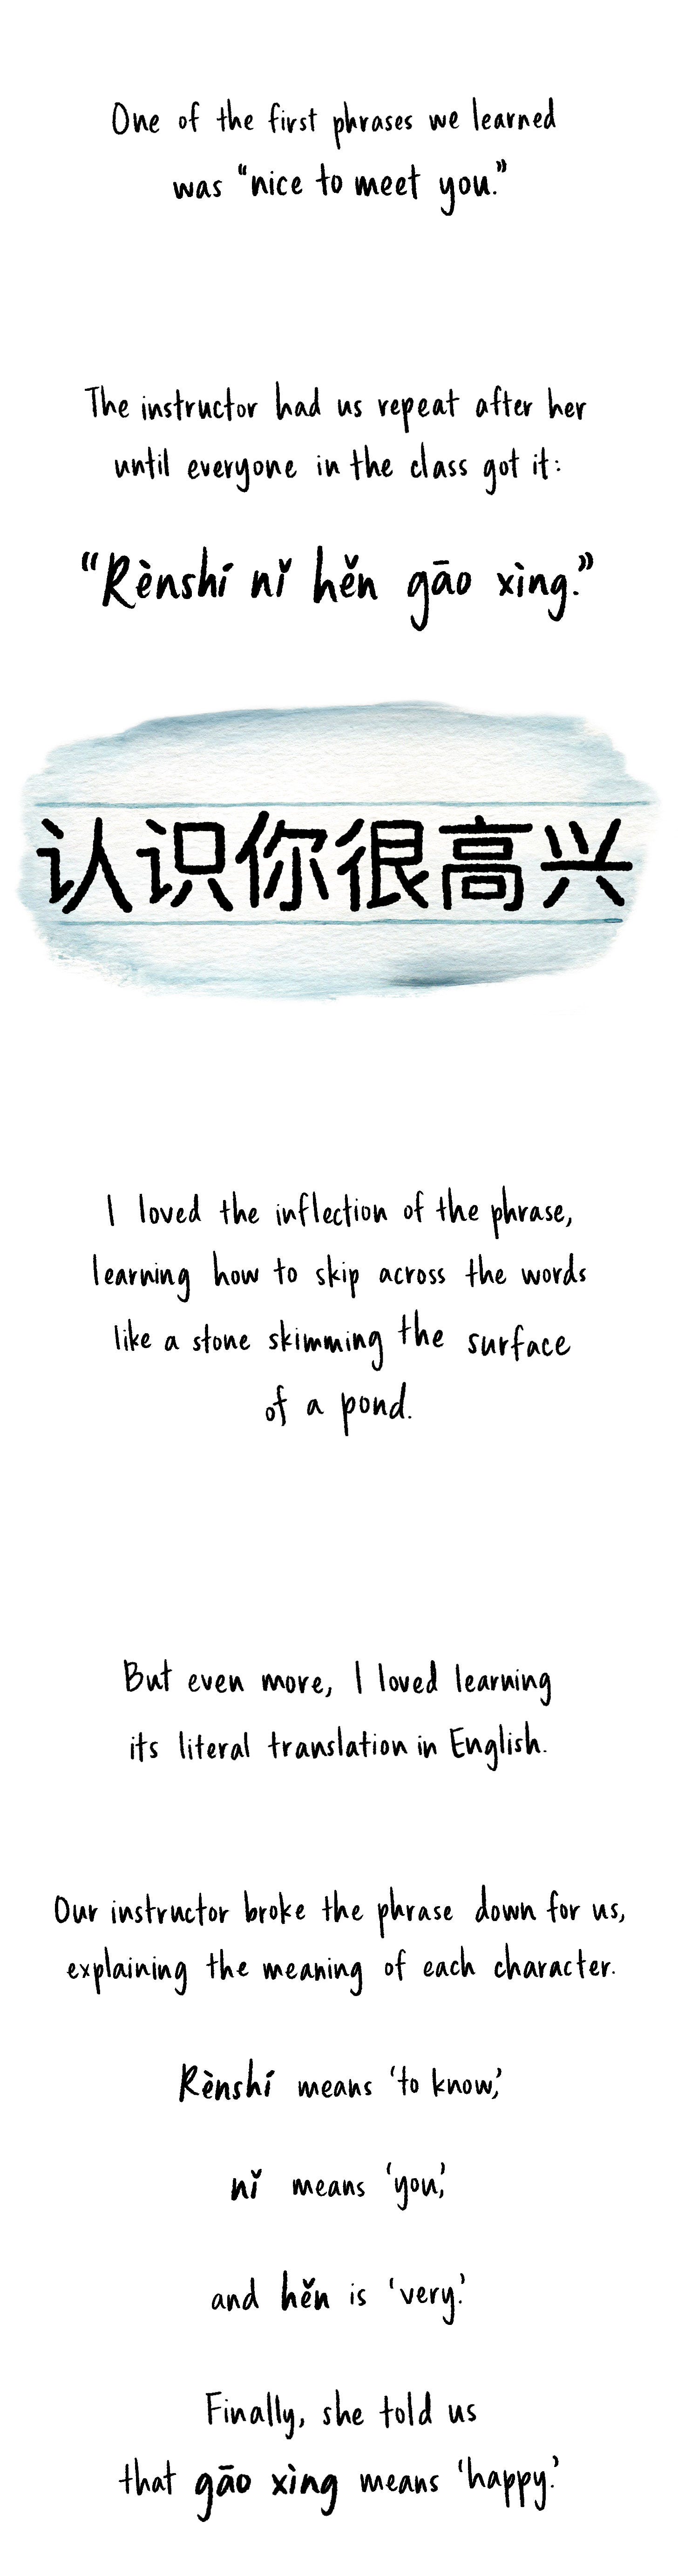 One of the first phrases we learned
was “nice to meet you.”
The instructor had us repeat after her
until everyone in the class got it:
“Rènshí nǐ hěn gāo xìng.”
认识你很高兴
I loved the inflection of the phrase,
learning how to skip across the words
like a stone skimming the surface
of a pond.
But even more, I loved learning
its literal translation in English.
Our instructor broke the phrase down for us,
explaining the meaning of each character.
Rènshí means ‘to know,’
nǐ means ‘you,’
and hěn is ‘very.’
Finally, she told us
that gāo xìng means ‘happy.’